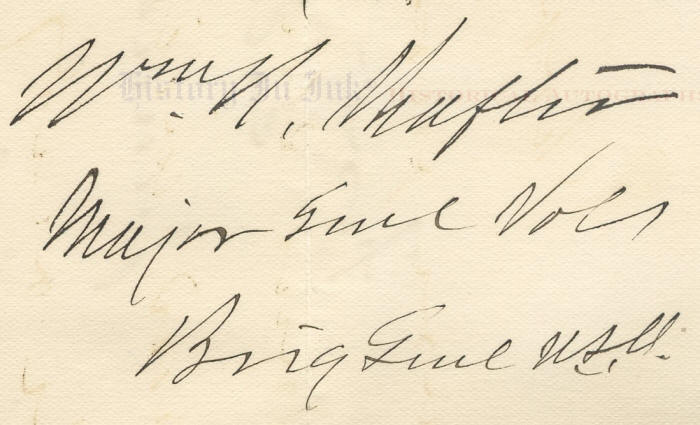 Wm. R. Shafter
Major Genl Vols
Brig Genl U.S.A.
History In Ink
HISTORICAL AUTOGRAPHS